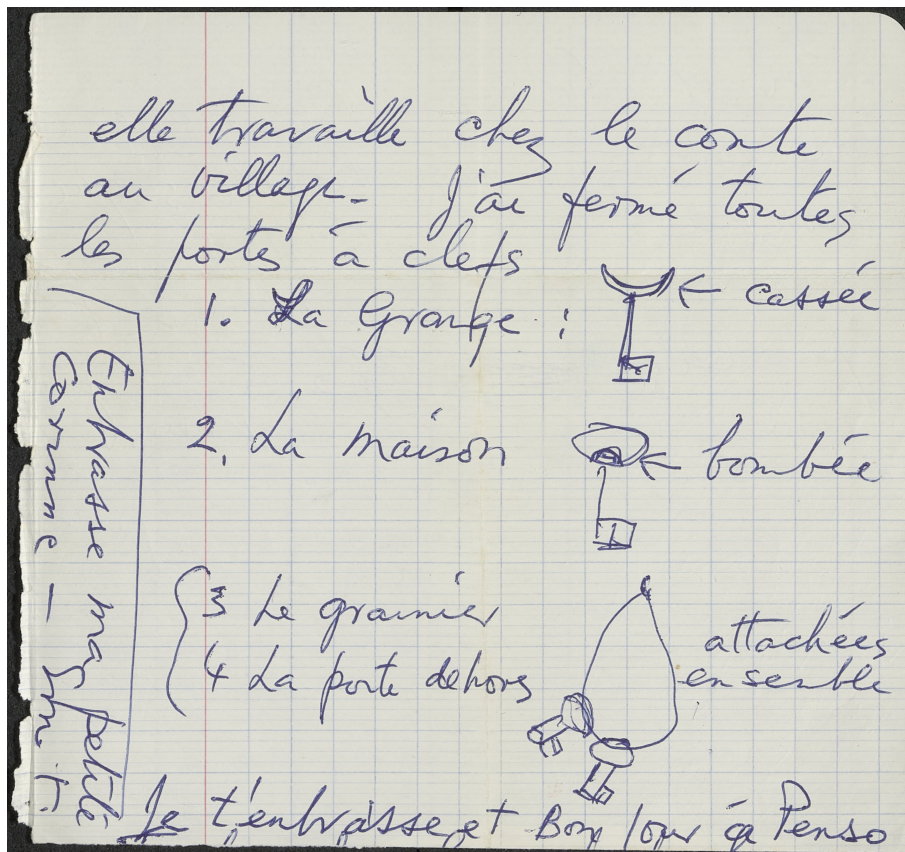 elle travaille chez le comte
au village. J'ai fermé toutes
les portes à clefs
1. La Grange : ← cassée
2. La maison ← bombée
3 Le grainier
4 La porte dehors
attachées
ensemble
Je t'embrasse et Bonjour à Penso
Embrasse ma petite
Corinne -